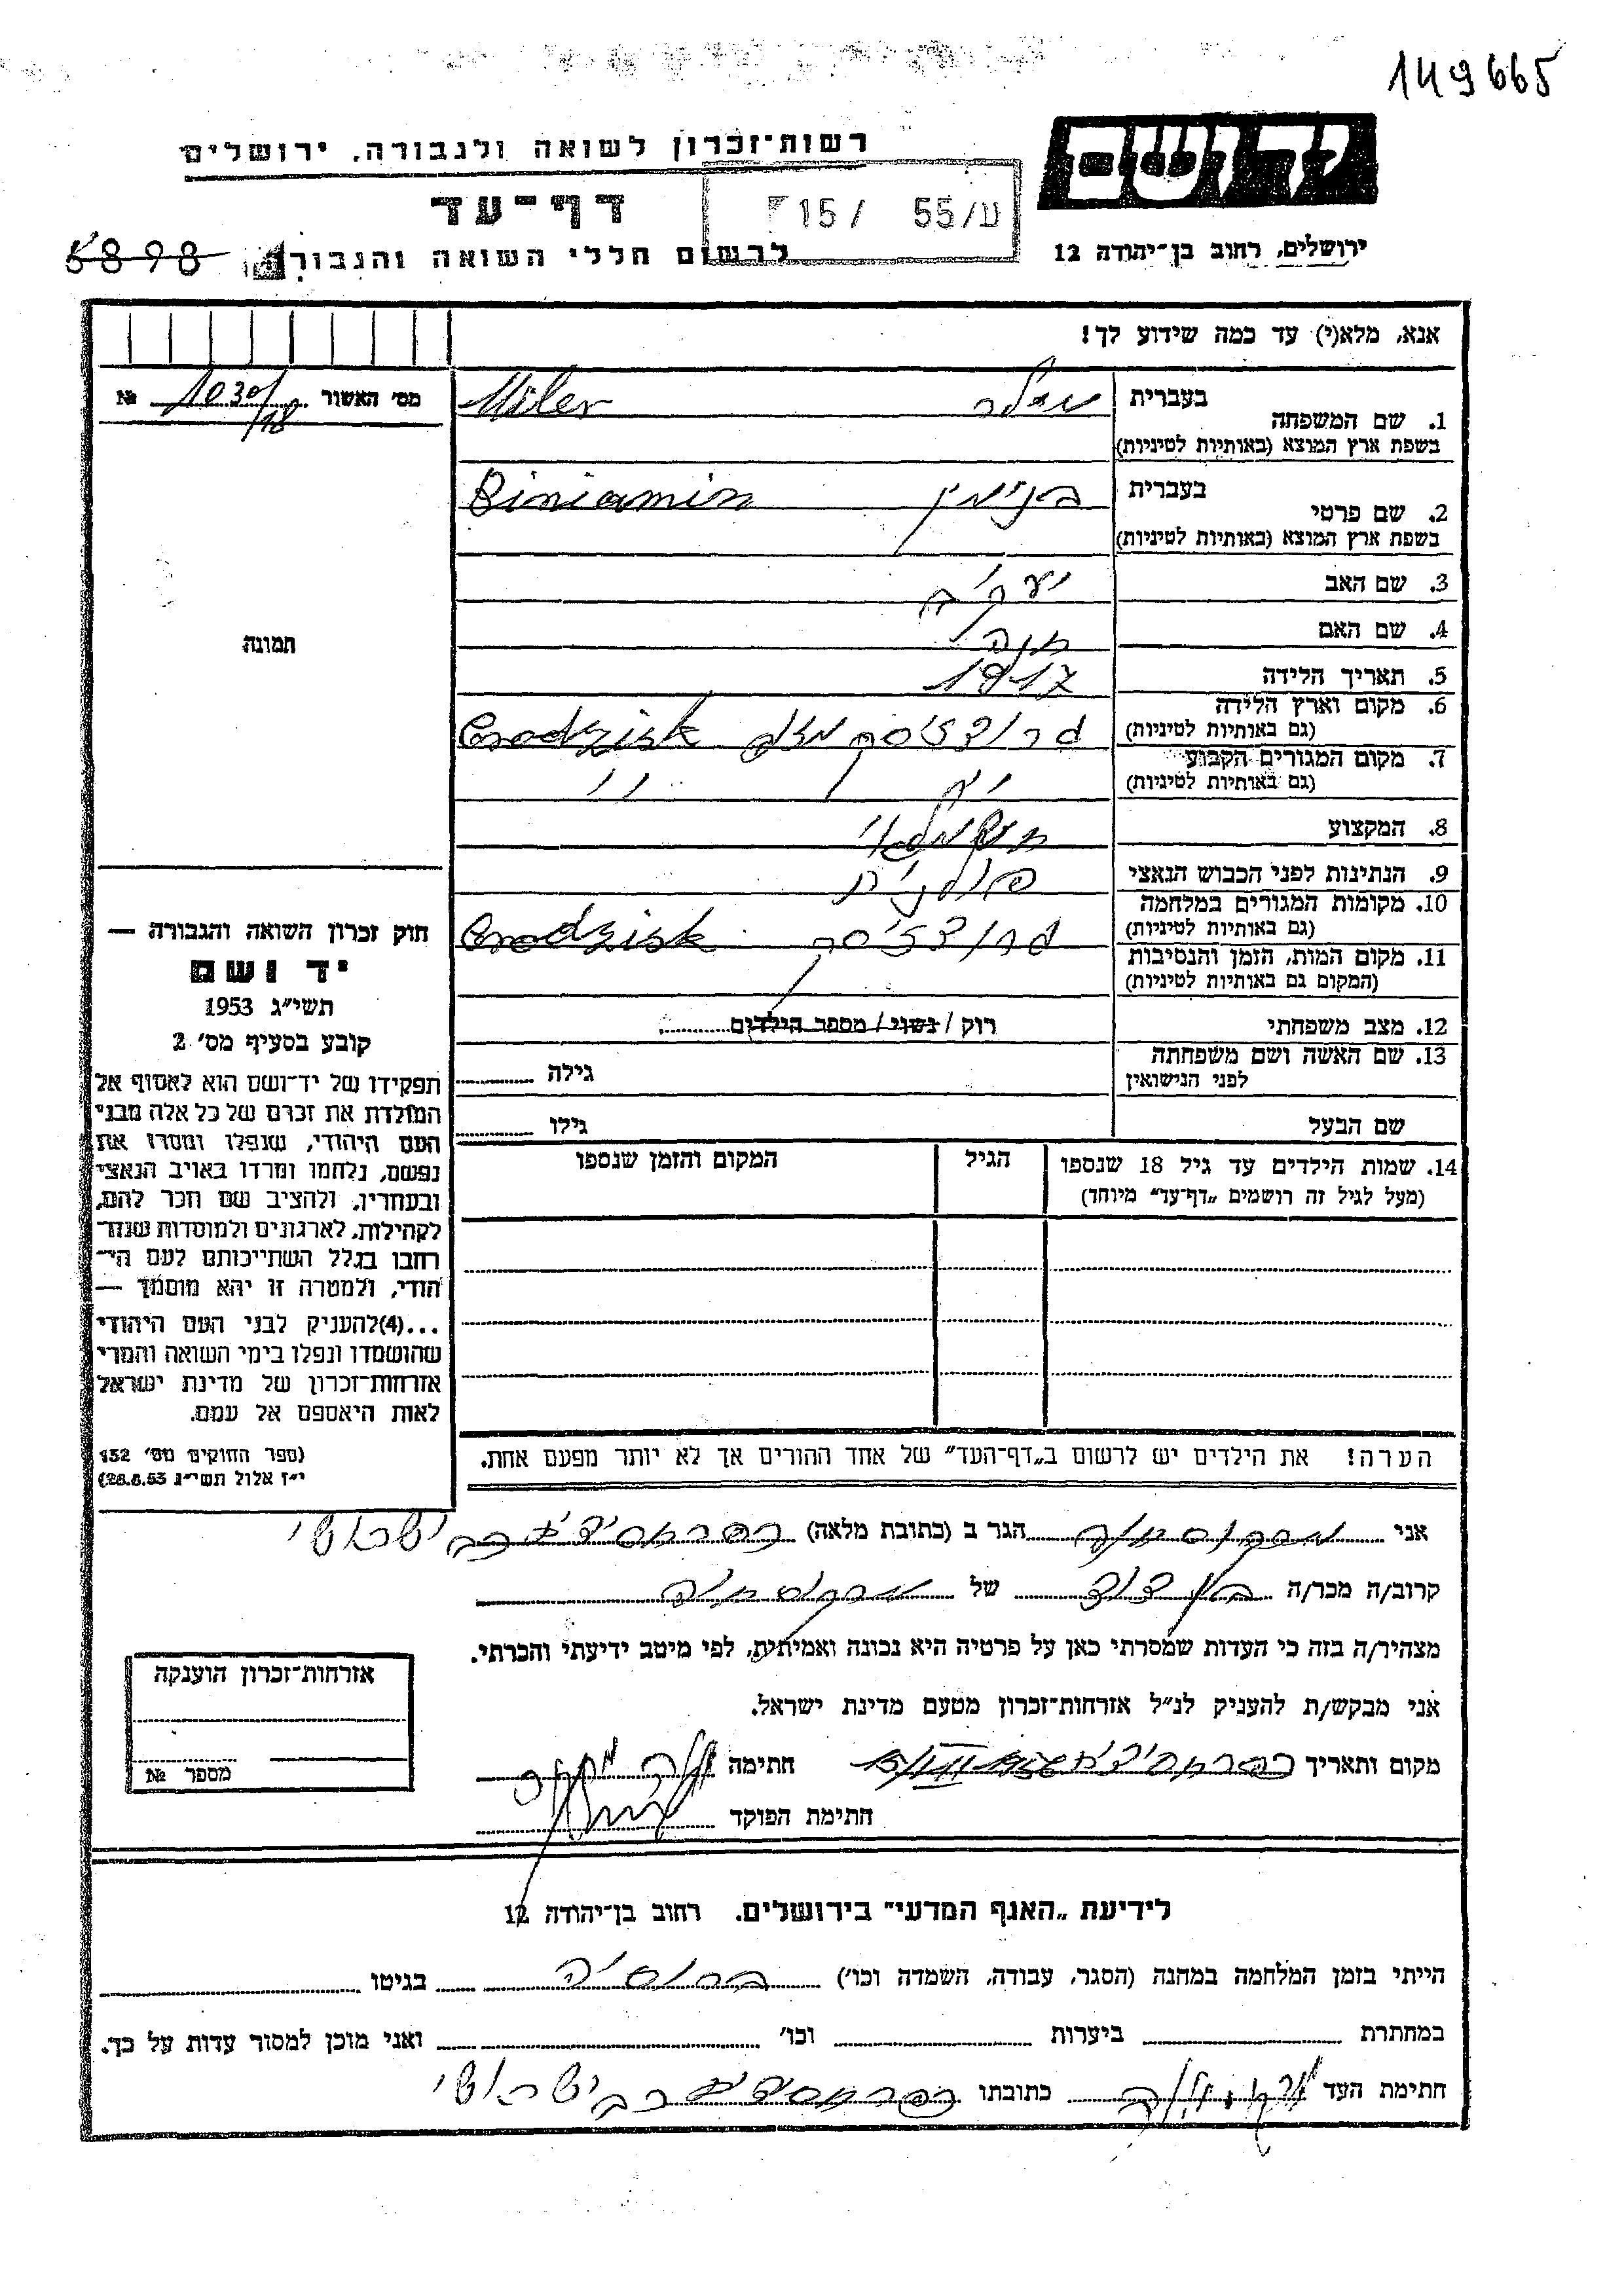 149665
יד ושם
רשות־זכרון לשואה ולגבורה, ירושלים
דף־עד
ע/55 /15
5898
לרשום חללי השואה והגבורה
ירושלים, רחוב בן־יהודה 12
אנא, מלא(י) עד כמה שידוע לך!
מס׳ האשור 1030/18 №
בעברית מילר Miler
1. שם המשפחה
בשפת ארץ המוצא (באותיות לטיניות)
בעברית בנימין Biniamin
2. שם פרטי
בשפת ארץ המוצא (באותיות לטיניות)
3. שם האב יעקב
4. שם האם חוה
5. תאריך הלידה 1917
6. מקום וארץ הלידה Grodzisk
(גם באותיות לטיניות)
7. מקום המגורים הקבוע
(גם באותיות לטיניות)
8. המקצוע חשמלאי
9. הנתינות לפני הכבוש הנאצי פולנית
10. מקומות המגורים במלחמה Grodzisk
(גם באותיות לטיניות)
11. מקום המות, הזמן והנסיבות
(המקום גם באותיות לטיניות)
12. מצב משפחתי רוק / נשוי / מספר הילדים
13. שם האשה ושם משפחתה גילה
לפני הנישואין
שם הבעל גילו
14. שמות הילדים עד גיל 18 שנספו הגיל המקום והזמן שנספו
(מעל לגיל זה רושמים „דף־עד״ מיוחד)
הערה! את הילדים יש לרשום ב„דף־העד״ של אחד ההורים אך לא יותר מפעם אחת.
תמונה
חוק זכרון השואה והגבורה —
יד ושם
תשי״ג 1953
קובע בסעיף מס׳ 2
תפקידו של יד־ושם הוא לאסוף אל
המולדת את זכרם של כל אלה מבני
העם היהודי, שנפלו ומסרו את
נפשם, נלחמו ומרדו באויב הנאצי
ובעוזריו, ולהציב שם וזכר להם,
לקהילות, לארגונים ולמוסדות שנח־
רבו בגלל השתייכותם לעם הי־
הודי, ולמטרה זו יהא מוסמך —
...(4) להעניק לבני העם היהודי
שהושמדו ונפלו בימי השואה והמרי
אזרחות־זכרון של מדינת ישראל
לאות היאספם אל עמם.
(ספר החוקים מס׳ 132
י״ז אלול תשי״ג 28.8.53)
אני הגר ב (כתובת מלאה)
קרוב/ה מכר/ה בן דוד של
מצהיר/ה בזה כי העדות שמסרתי כאן על פרטיה היא נכונה ואמיתית, לפי מיטב ידיעתי והכרתי.
אני מבקש/ת להעניק לנ״ל אזרחות־זכרון מטעם מדינת ישראל.
מקום ותאריך חתימה
חתימת הפוקד
אזרחות־זכרון הוענקה
מספר №
לידיעת „האגף המדעי״ בירושלים. רחוב בן־יהודה 12
הייתי בזמן המלחמה במחנה (הסגר, עבודה, השמדה וכו׳) ברוסיה בגיטו
במחתרת ביערות וכו׳ ואני מוכן למסור עדות על כך.
חתימת העד כתובתו